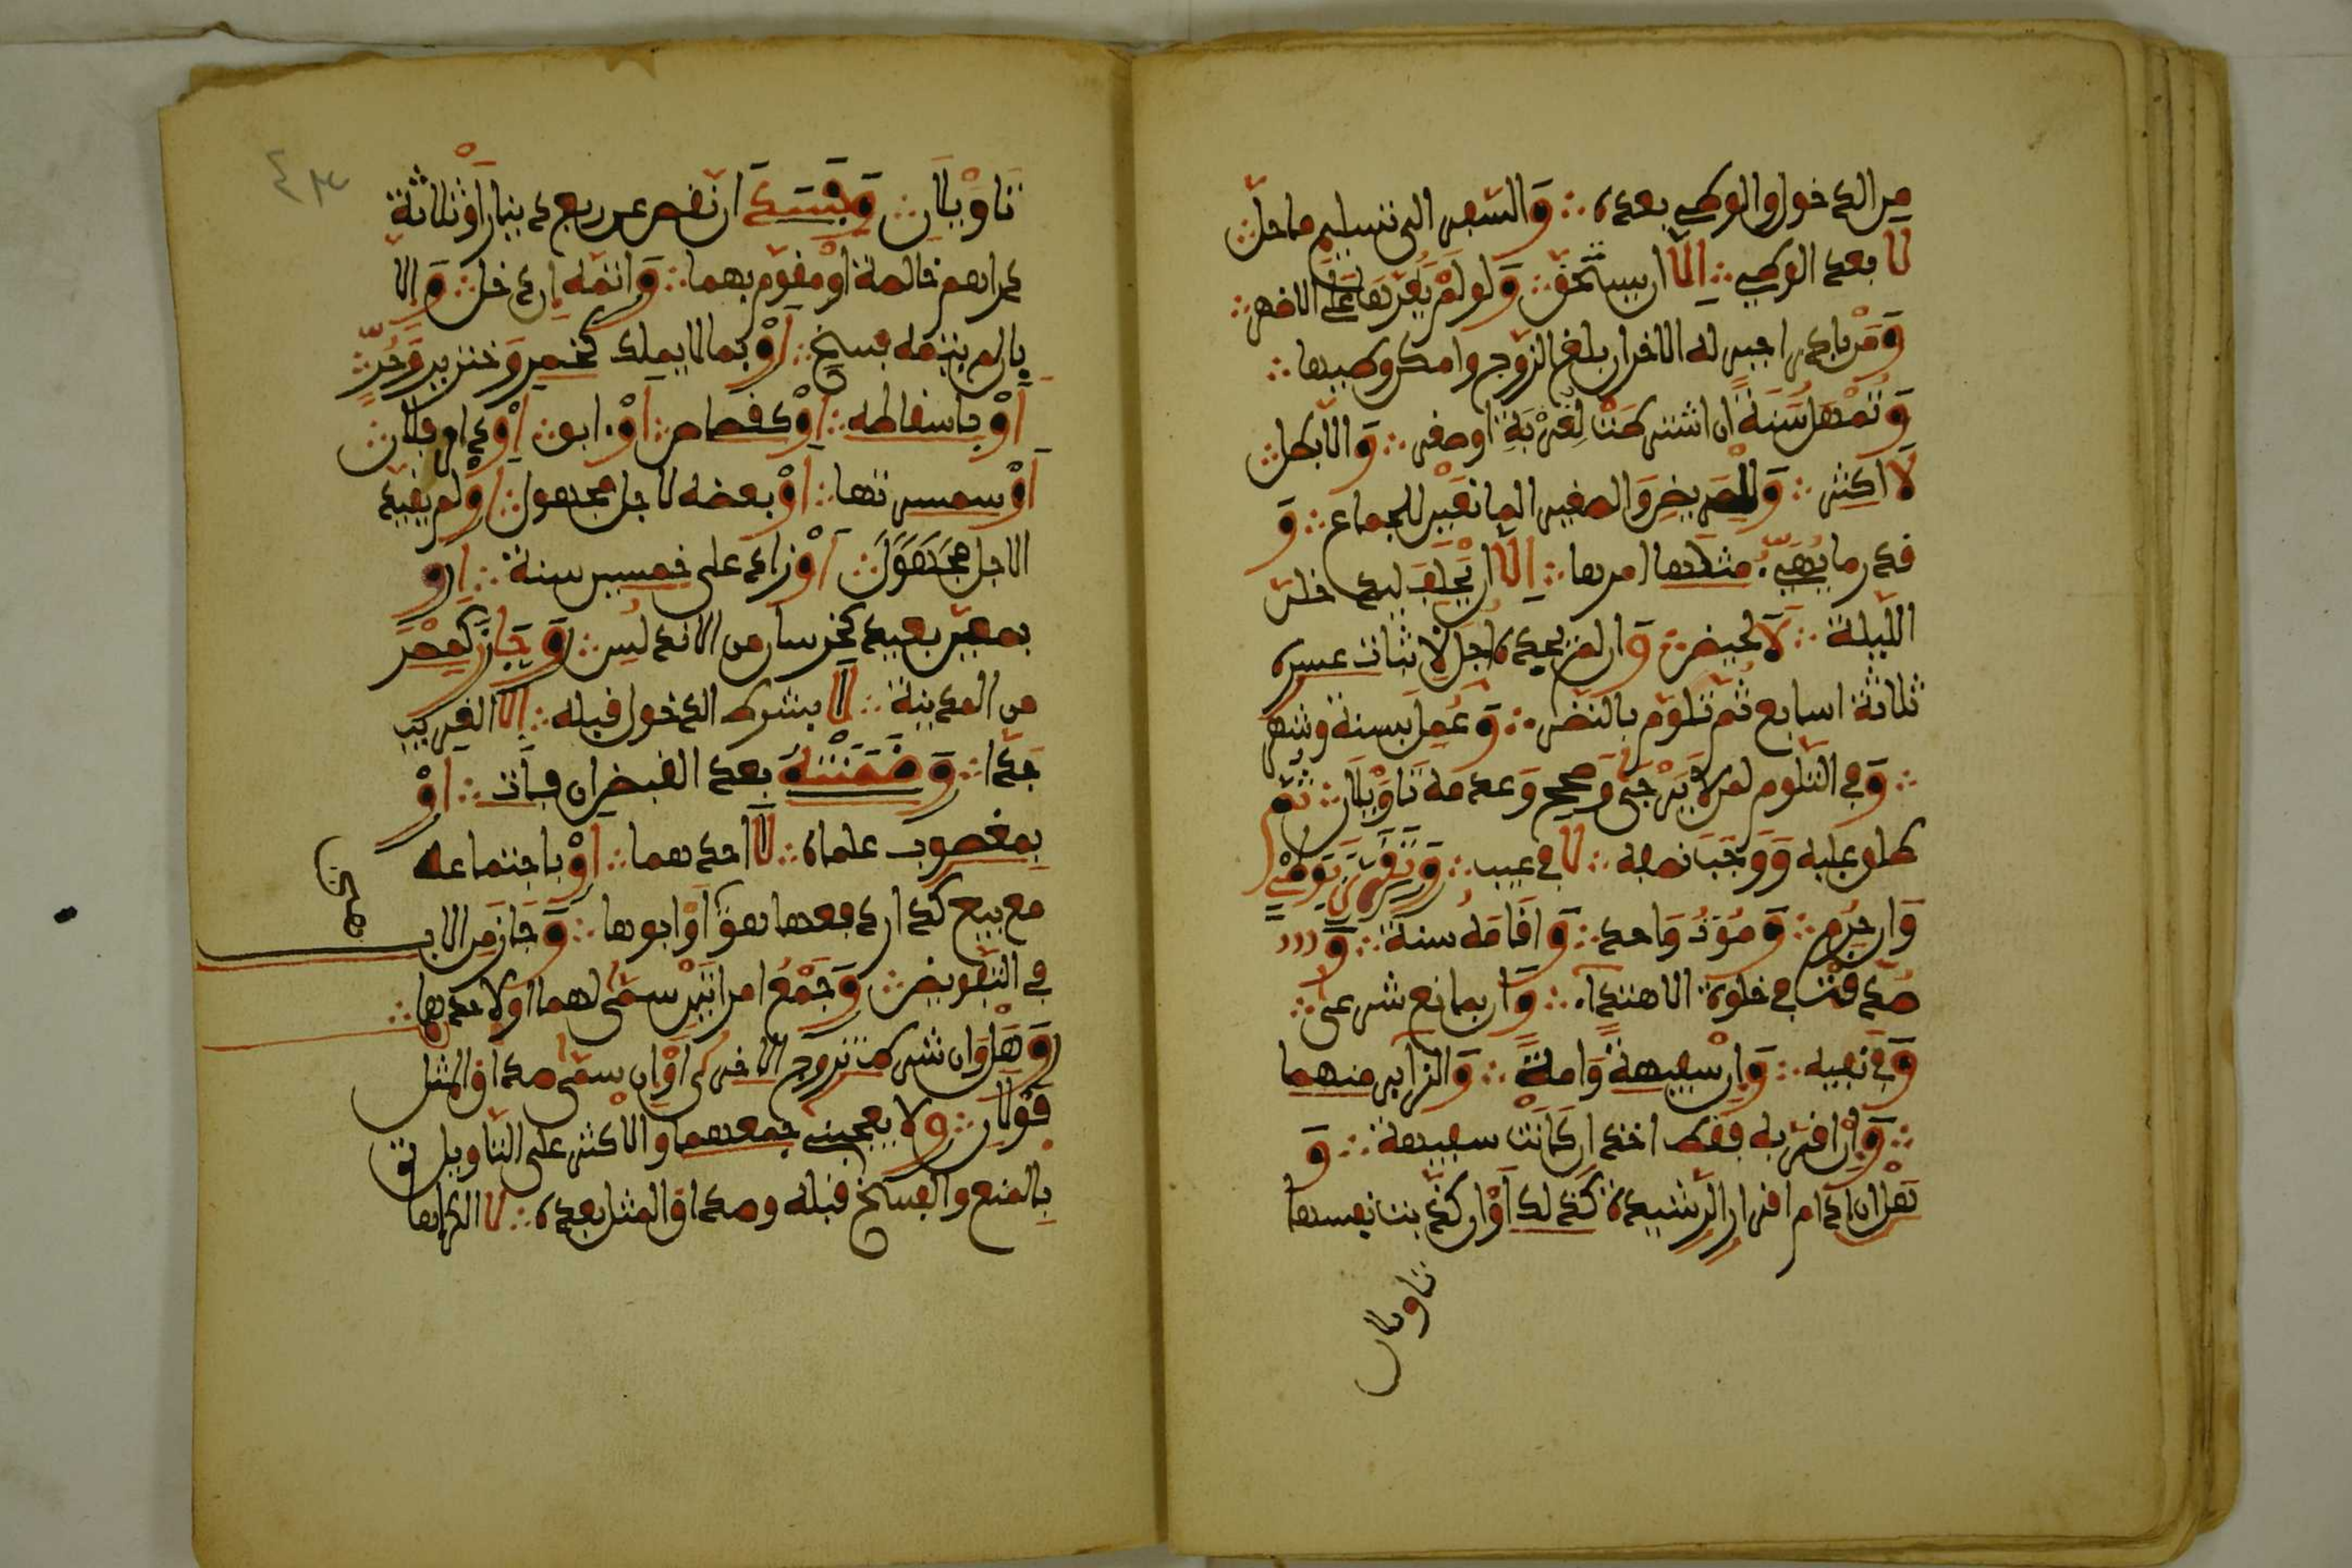 من الدخول والوطء بعده ؞ والسفر إلى تسليم ما حل ؞
لا بعد الوطء ؞ إلا أن يستحق ؞ ولو لم يغرها على الأظهر ؞
ومن بادر أجبر له الآخر إن بلغ الزوج وأمكن وطؤها ؞
وتمهل سنة إن اشترطت لغربة أو صغر ؞ وإلا بطل ؞
لا أكثر ؞ وللمرض والصغر المانعين للجماع ؞ و
قدر ما يهيئ مثلها أمرها ؞ إلا أن يحلف ليدخلن
الليلة ؞ لا لحيض ؞ وإن لم يجده أجل لإثبات عسره
ثلاثة أسابع ثم تلوم بالنظر ؞ وعمل بسنة وشهر
؞ وفي التلوم لمن لا يرجى وصحح وعدمه تأويلان ؞ ثم
طلق عليه ووجب نصفه ؞ لا في عيب ؞ وتقرر بوطء
وإن حرم ؞ وموت واحد ؞ وإقامة سنة ؞ و
صدقت في خلوة الاهتداء ؞ وإن بمانع شرعي ؞
وفي نفيه ؞ وإن سفيهة وأمة ؞ والزائر منهما
؞ وإن أقر به فقط أخذ إن كانت سفيهة ؞ و
هل إن أدام الإقرار الرشيدة كذلك أو إن كذبت نفسها
تاويلان
تأويلان ؞ وفسد إن نقص عن ربع دينار أو ثلاثة
دراهم خالصة أو مقوم بهما ؞ وأتمه إن دخل ؞ وإلا
فإن لم يتمه فسخ ؞ أو بما لا يملك كخمر وخنزير وحر ؞
أو بإسقاطه ؞ أو كقصاص ؞ أو آبق ؞ أو دار فلان ؞
أو سمسرتها ؞ أو بعضه لأجل مجهول ؞ أو لم يقيد
الأجل ؞ أو زاد على خمسين سنة ؞ أو
بمعين بعيد كخرسان من الأندلس ؞ وجاز كمصر
من المدينة ؞ لا بشرط الدخول قبله ؞ إلا القريب
جدا ؞ وضمنته بعد القبض إن فات ؞ أو
بمغصوب علماه ؞ لا أحدهما ؞ أو باجتماعه
مع بيع كدار دفعها هو أو أبوها ؞ وجاز من الأب
في التفويض ؞ وجمع امرأتين سمى لهما أو لأحدهما ؞
وهل وإن شرط تزوج الأخرى أو إن سمى صداق المثل
قولان ؞ ولا يعجبني جمعهما والأكثر على التأويل
بالمنع والفسخ قبله وصداق المثل بعده ؞ لا الكراهة